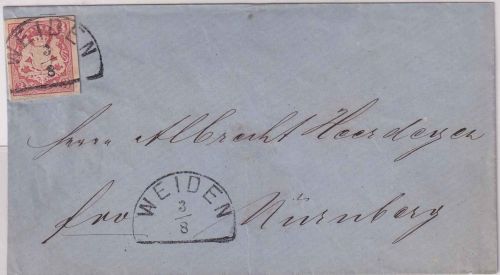 WEIDEN
3/8
Herrn Albrecht Heerdegen
WEIDEN
3/8
fro Nürnberg